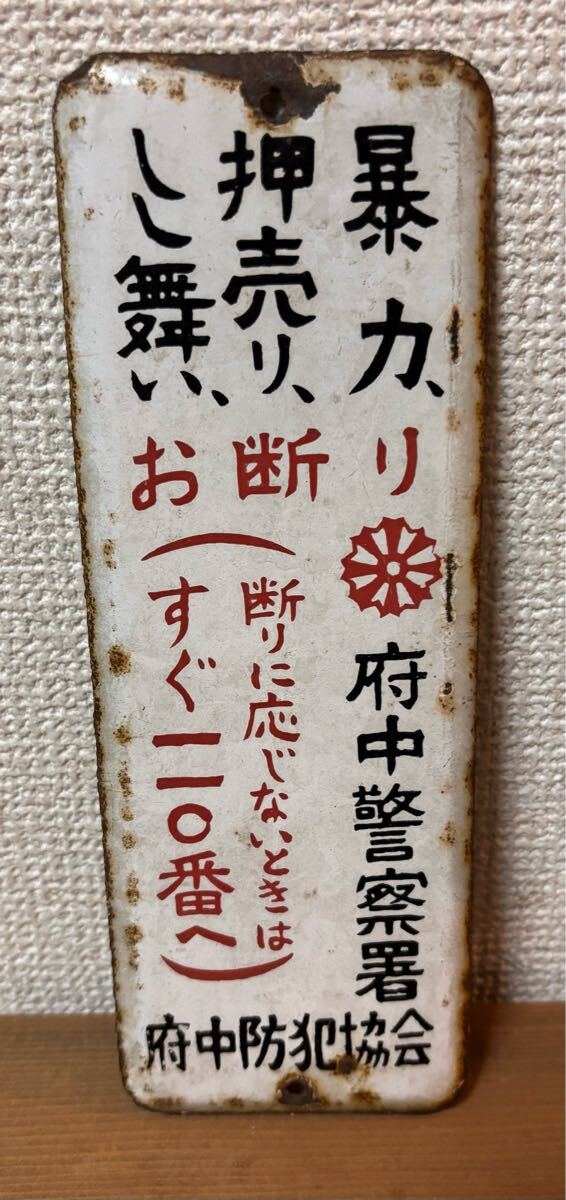 暴力、
押売り、
しし舞い、
お断り
(断りに応じないときは
すぐ一一〇番へ)
府中警察署
府中防犯協会